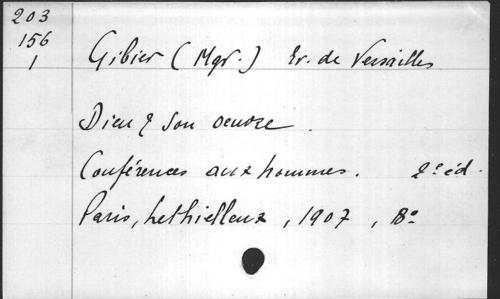 203
156
1
Gibier (Mgr.) Ev. de Versailles
Dieu & son oeuvre.
Conférences aux hommes. 2e éd.
Paris, Lethielleux, 1907, 8°